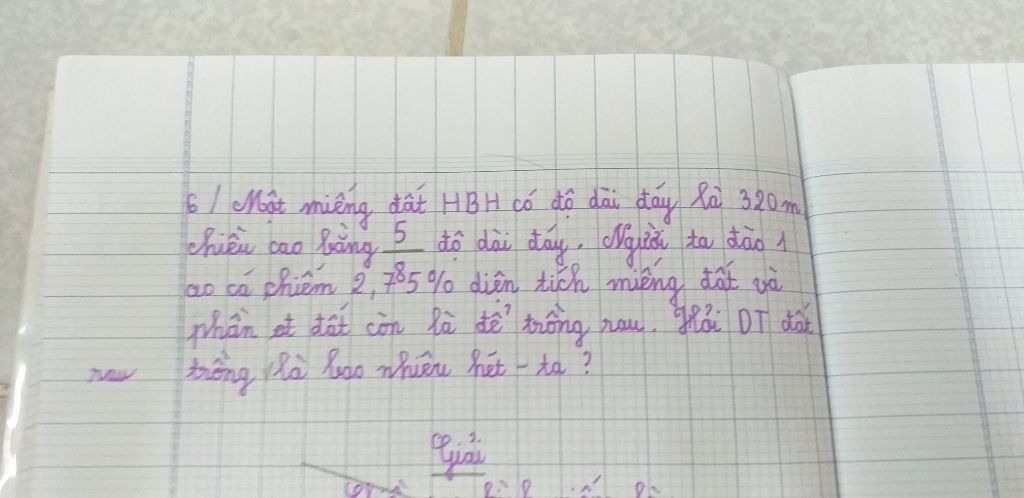 6/ Một miếng đất HBH có độ dài đáy là 320m
chiều cao bằng 5/8 độ dài đáy. Người ta đào 1
ao cá chiếm 2,75% diện tích miếng đất và
phần đất còn là để trồng rau. Hỏi DT đất
rau trồng là bao nhiêu hét-ta?
Giải